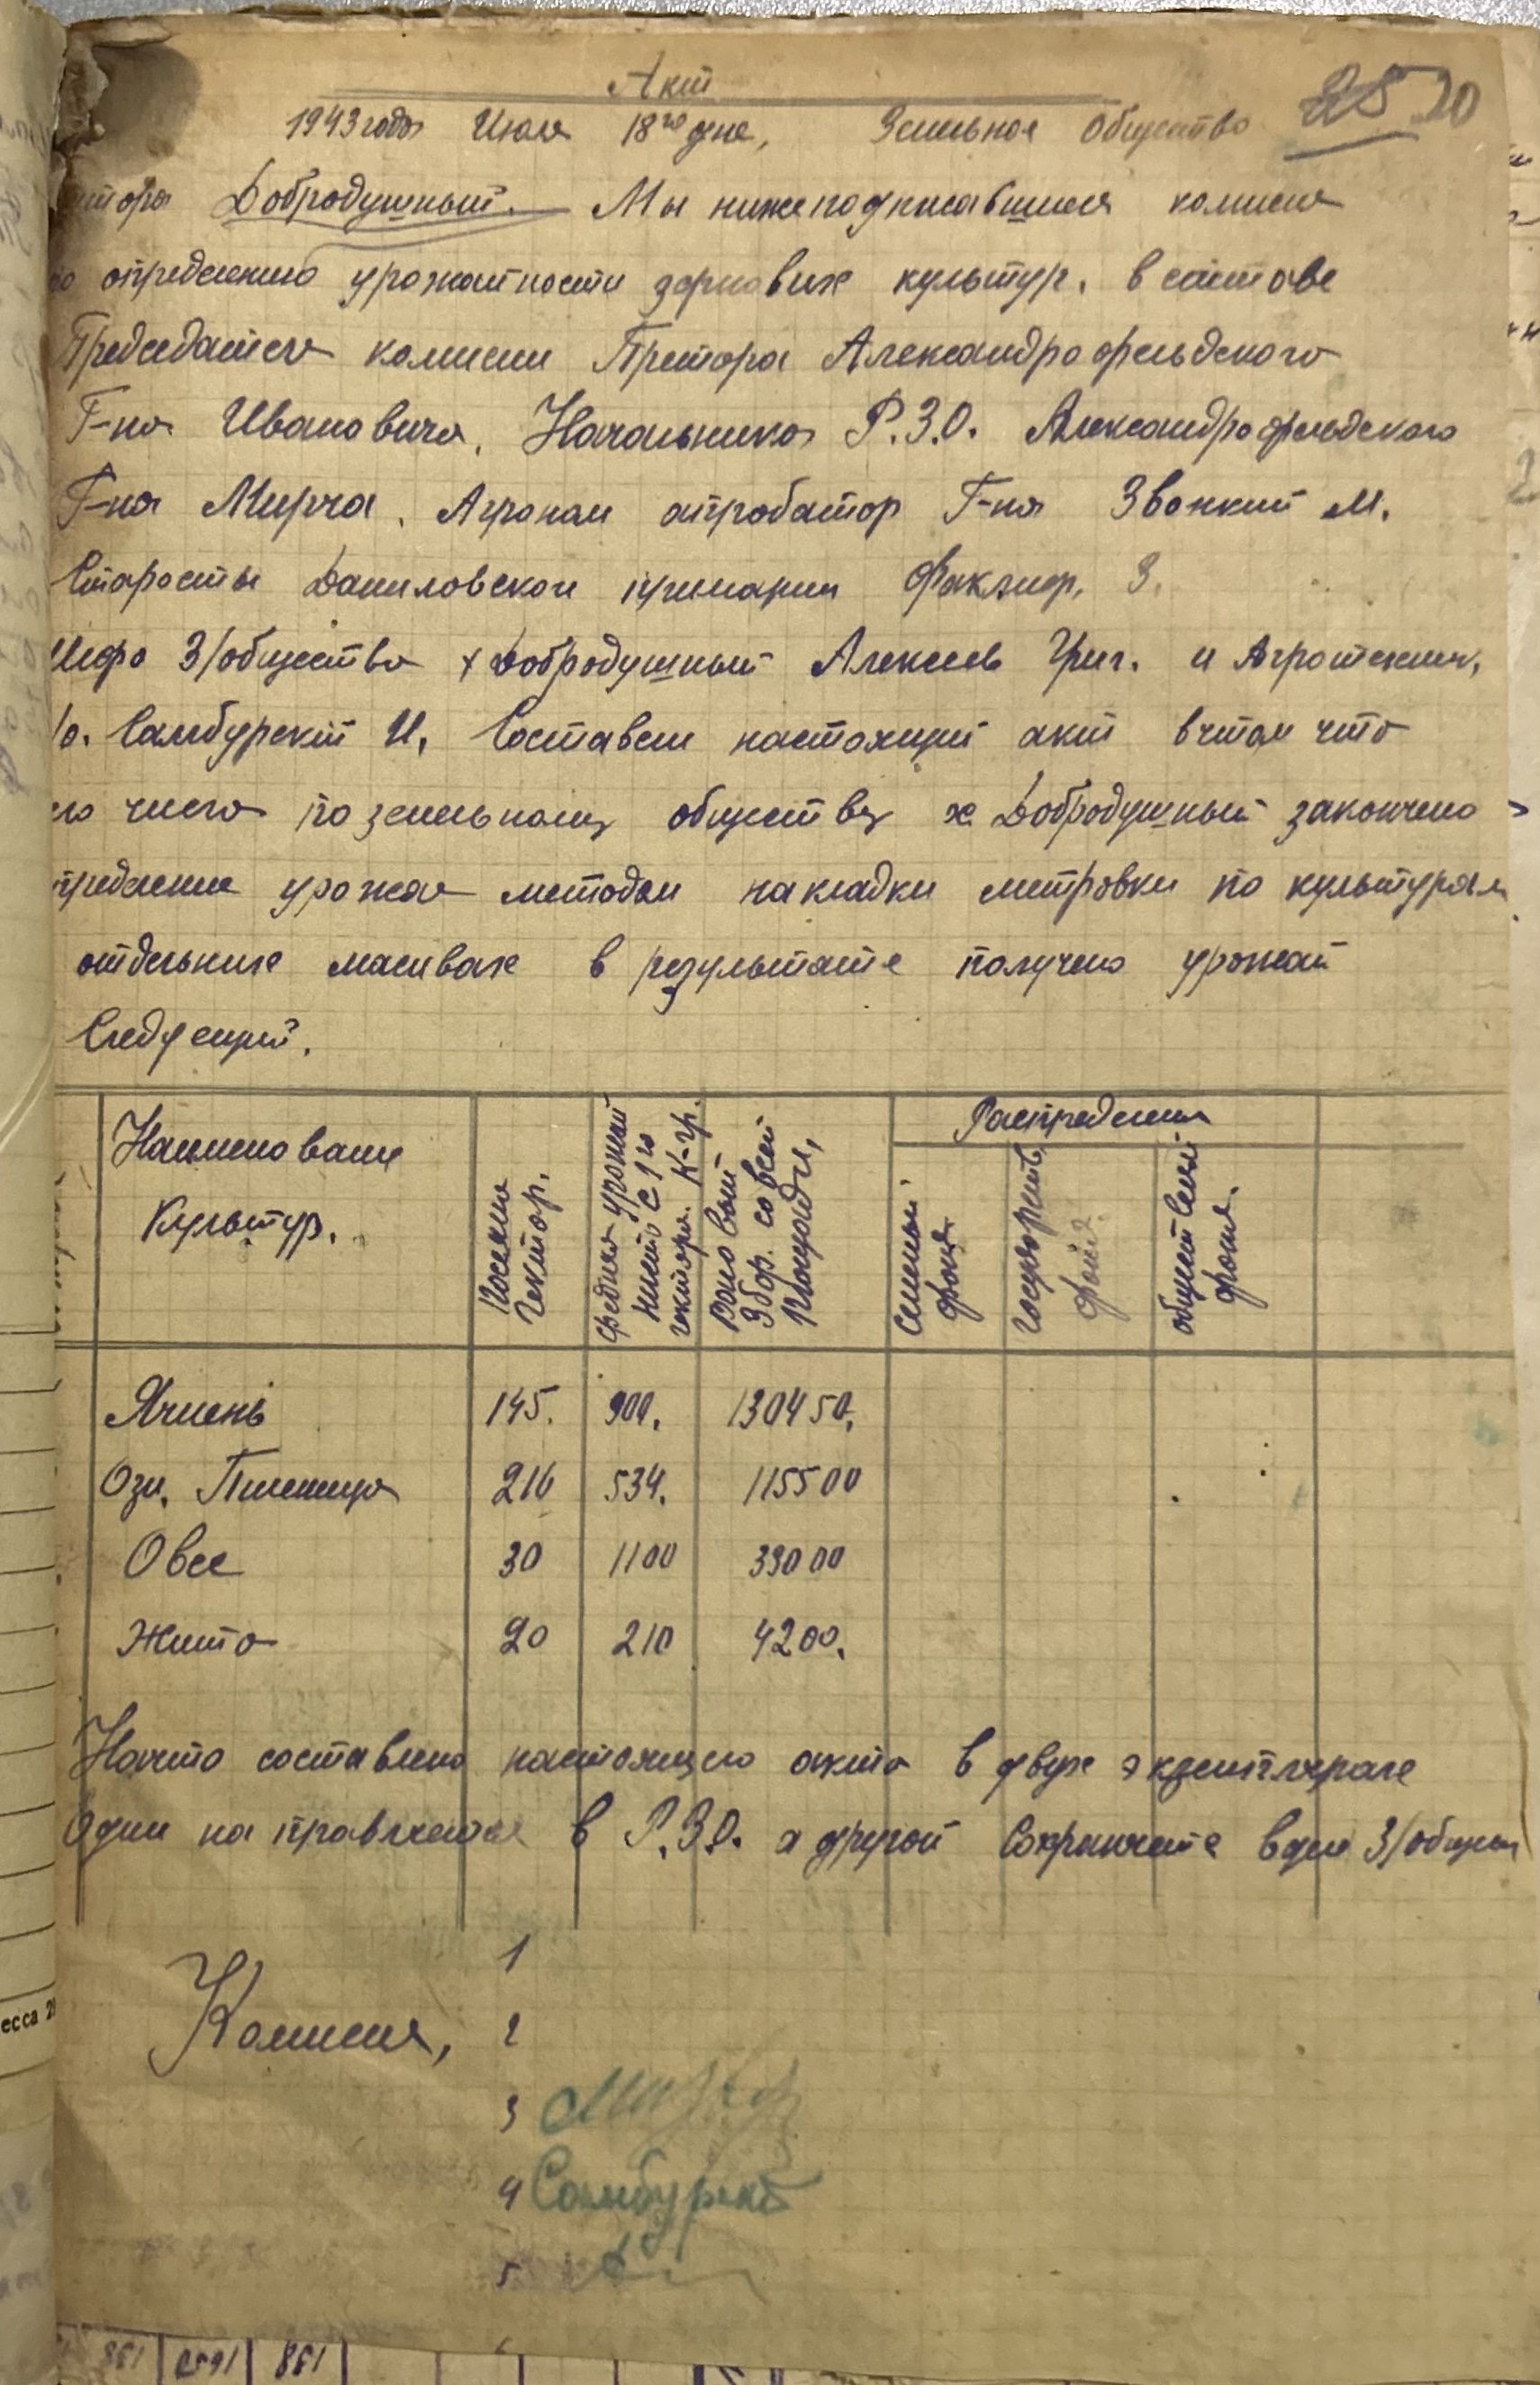 Акт
28 20
1943 года Июля 18го дня, Земельное Общество
хутора Добродушный. Мы нижеподписавшиеся комисия
по определению урожайности зерновых культур. в составе
Председателя комисии Претора Александрофельдского
Г-на Ивановича, Начальника Р.З.О. Александрофельдского
Г-на Мирча, Агроном апробатор Г-на Звонкий М.
Старосты Даниловской примарии
Шефа З/общества х Добродушный Алексеев Григ. и Агротехник,
Самбурский И, Составели настоящий акт втом что
число по земельному обществу х. Добродушный закончено
определение урожая методом накладки метровки по культурам
отдельных масивах в результате получено урожай
Следующий.
Наименование Культур.
Посеяно гектор.
средняя урожайность с 1го гектара. К-гр.
Валовый Збор. со всей площади,
Распределения
Семеный фонд
государств. фонд.
общественый фонд.
Ячмень 145. 900. 130450.
Ози. Пшеница 216 534. 115500
Овес 30 1100 33000
Жито 20 210 4200.
Начто составлено настоящего акта в двух экземплярах
Один направляется в Р.З.О. а другой Сохраняете вделе З/общест
Комисия,
1
2
3
4 Самбурский
5
881 1650 138
есса 2